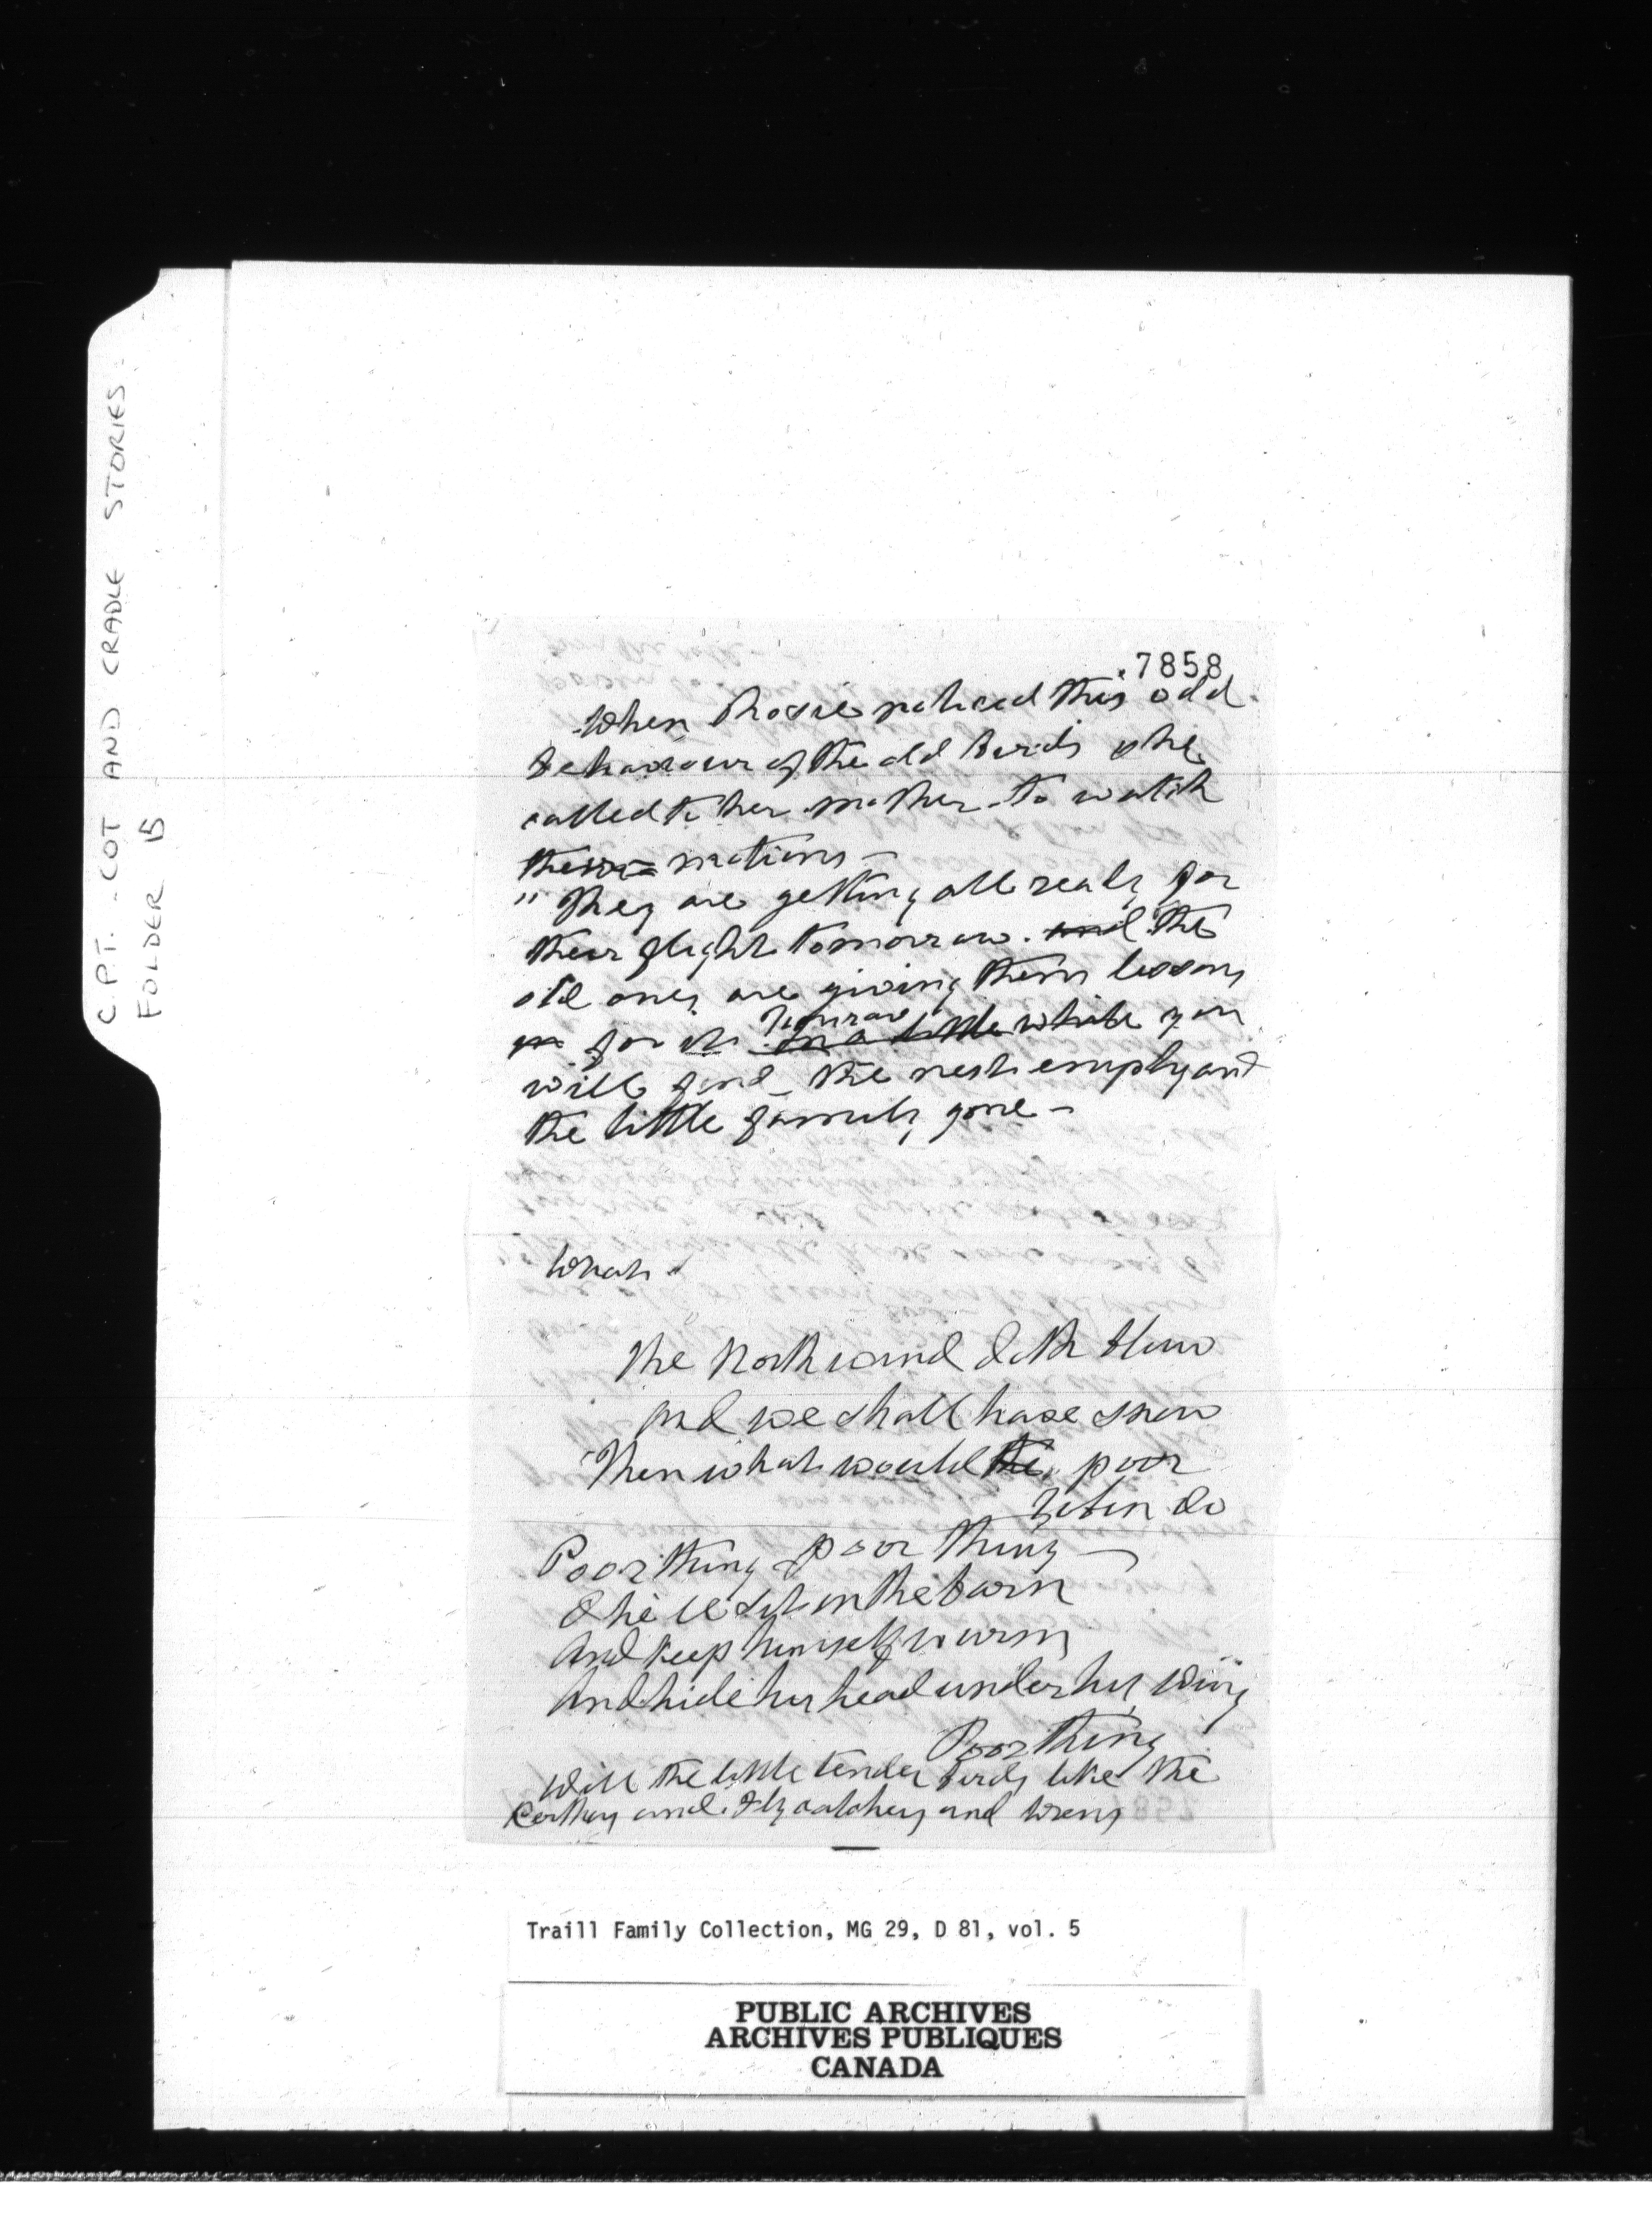 C.P.T. - COT AND CRADLE STORIES.
FOLDER 15
.7858
When Rosie noticed this odd
behaviour of the old birds she
called to her mother to watch
their motions -
"They are getting all ready for
their flight tomorrow. and the
old ones are giving them lessons
for it. Tomorrow
in a little while you
will find the nest empty and
the little family gone -
What
The North wind doth blow
And we shall have snow
Then what would the poor
Robin do
Poor thing poor thing -
O he'll sit in the barn
And keep himself warm
And hide his head under his wing
Poor thing
Will the little tender birds like the
and Flycatchers and Wrens
Traill Family Collection, MG 29, D 81, vol. 5
PUBLIC ARCHIVES
ARCHIVES PUBLIQUES
CANADA